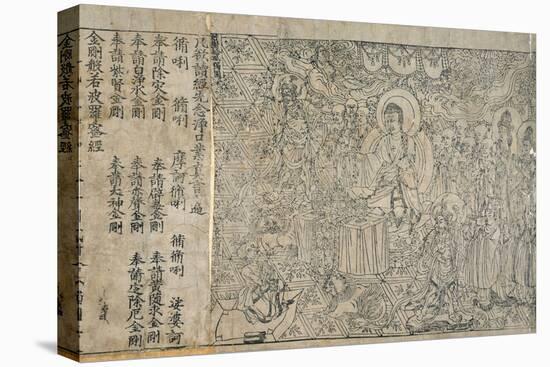 凡欲讀經先念淨口業真言一遍
脩唎 脩唎 摩訶脩唎 脩脩唎 娑婆訶
奉請除灾金剛 奉請辟毒金剛 奉請黃隨求金剛
奉請白淨水金剛 奉請赤聲金剛 奉請定除厄金剛
奉請紫賢金剛 奉請大神金剛
金剛般若波羅蜜經
金剛般若波羅蜜經